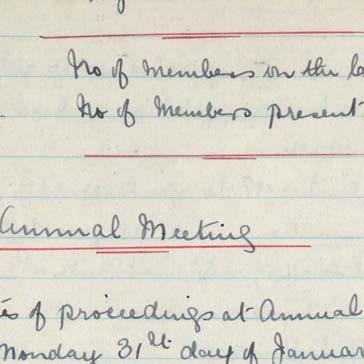 No of Members on the
No of Members present
Annual Meeting
of proceedings at Annual
Monday 31st day of Januar